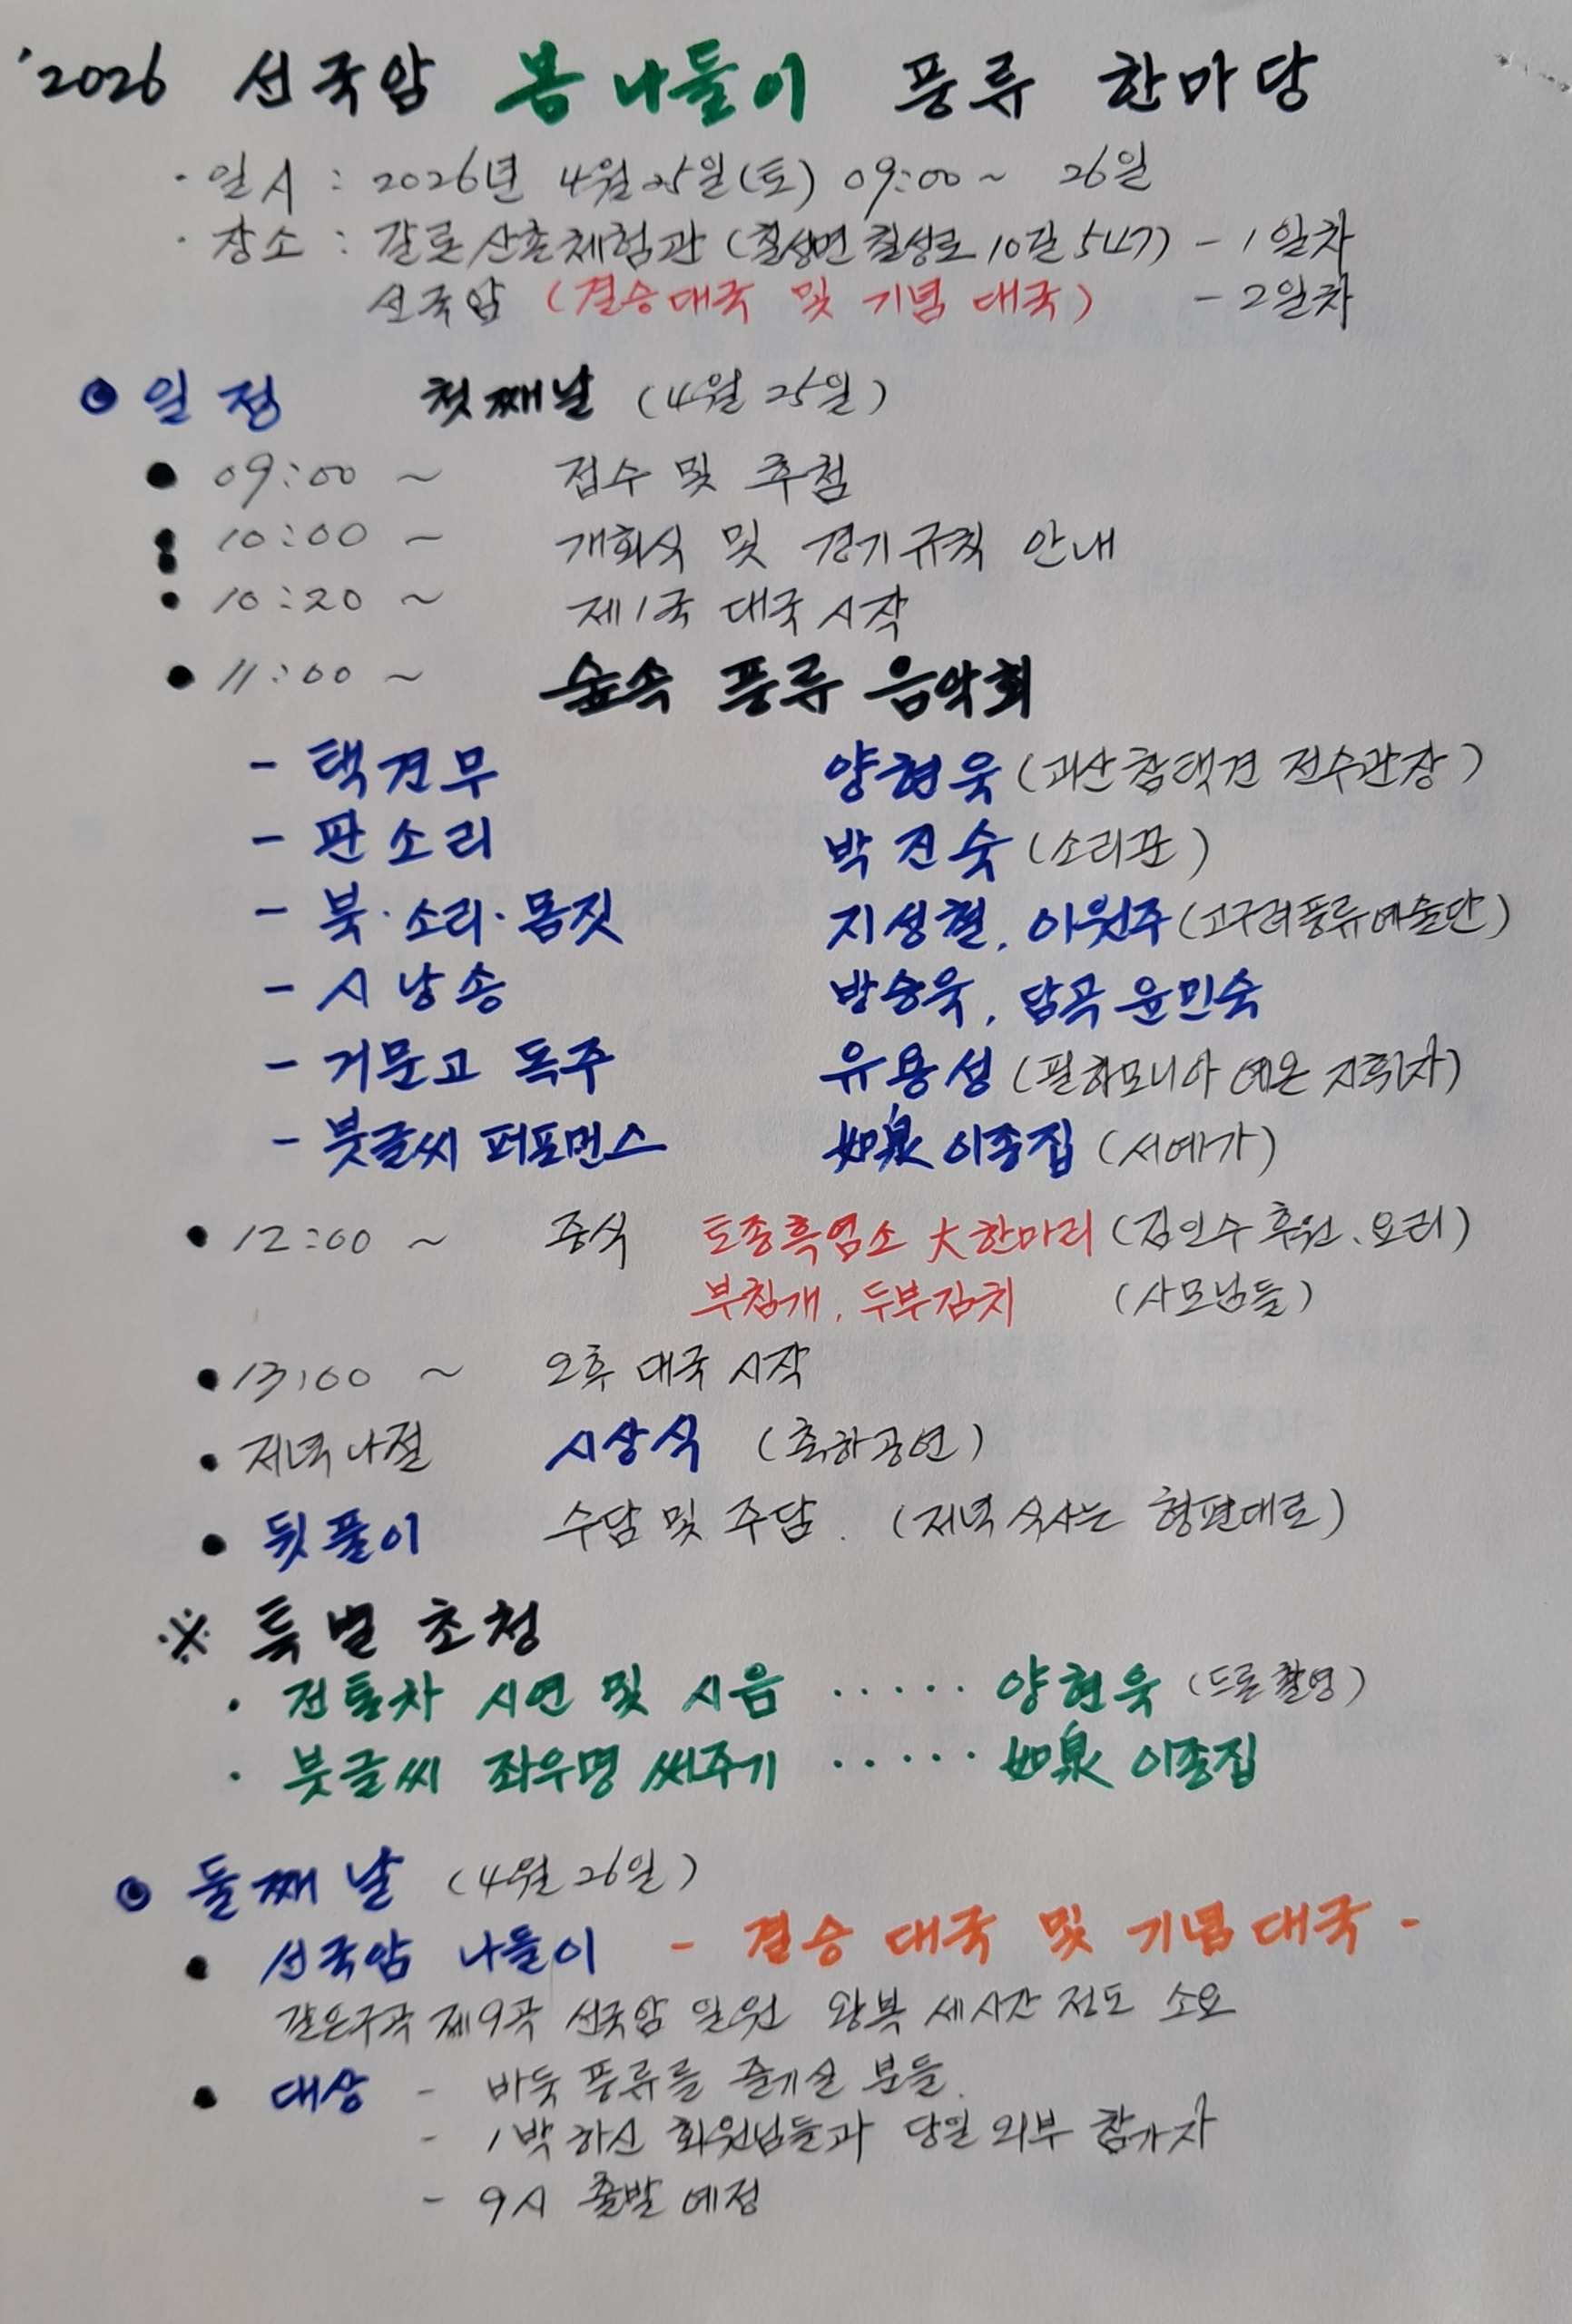 '2026 선국암 봄나들이 풍류 한마당
· 일시 : 2026년 4월 25일(토) 09:00 ~ 26일
· 장소 : 갈론산촌체험관 (칠성면 칠성로10길 547) - 1일차
선국암 (결승대국 및 기념 대국) - 2일차
◉ 일정 첫째날 (4월 25일)
● 09:00 ~ 접수 및 추첨
● 10:00 ~ 개회식 및 경기규칙 안내
● 10:20 ~ 제1국 대국 시작
● 11:00 ~ 숲속 풍류 음악회
- 택견무 양현욱 (괴산참택견 전수관장)
- 판소리 박진숙 (소리꾼)
- 북·소리·몸짓 지성철, 이원주 (고구려풍류예술단)
- 시낭송 방승욱, 담곡 윤민숙
- 거문고 독주 유용성 (필하모니아 예온 지휘자)
- 붓글씨 퍼포먼스 如泉 이종집 (서예가)
● 12:00 ~ 중식 토종흑염소 大 한마리 (김인수 후원, 요리)
부침개, 두부김치 (사모님들)
● 13:00 ~ 오후 대국 시작
● 저녁나절 시상식 (축하공연)
● 뒷풀이 수담 및 주담. (저녁 식사는 형편대로)
※ 특별 초청
· 전통차 시연 및 시음 ····· 양현욱 (드론촬영)
· 붓글씨 좌우명 써주기 ····· 如泉 이종집
◉ 둘째날 (4월 26일)
● 선국암 나들이 - 결승 대국 및 기념대국 -
갈은구곡 제9곡 선국암 일원 왕복 세시간 정도 소요
● 대상 - 바둑 풍류를 즐기실 분들.
- 1박 하신 회원님들과 당일 외부 참가자
- 9시 출발 예정